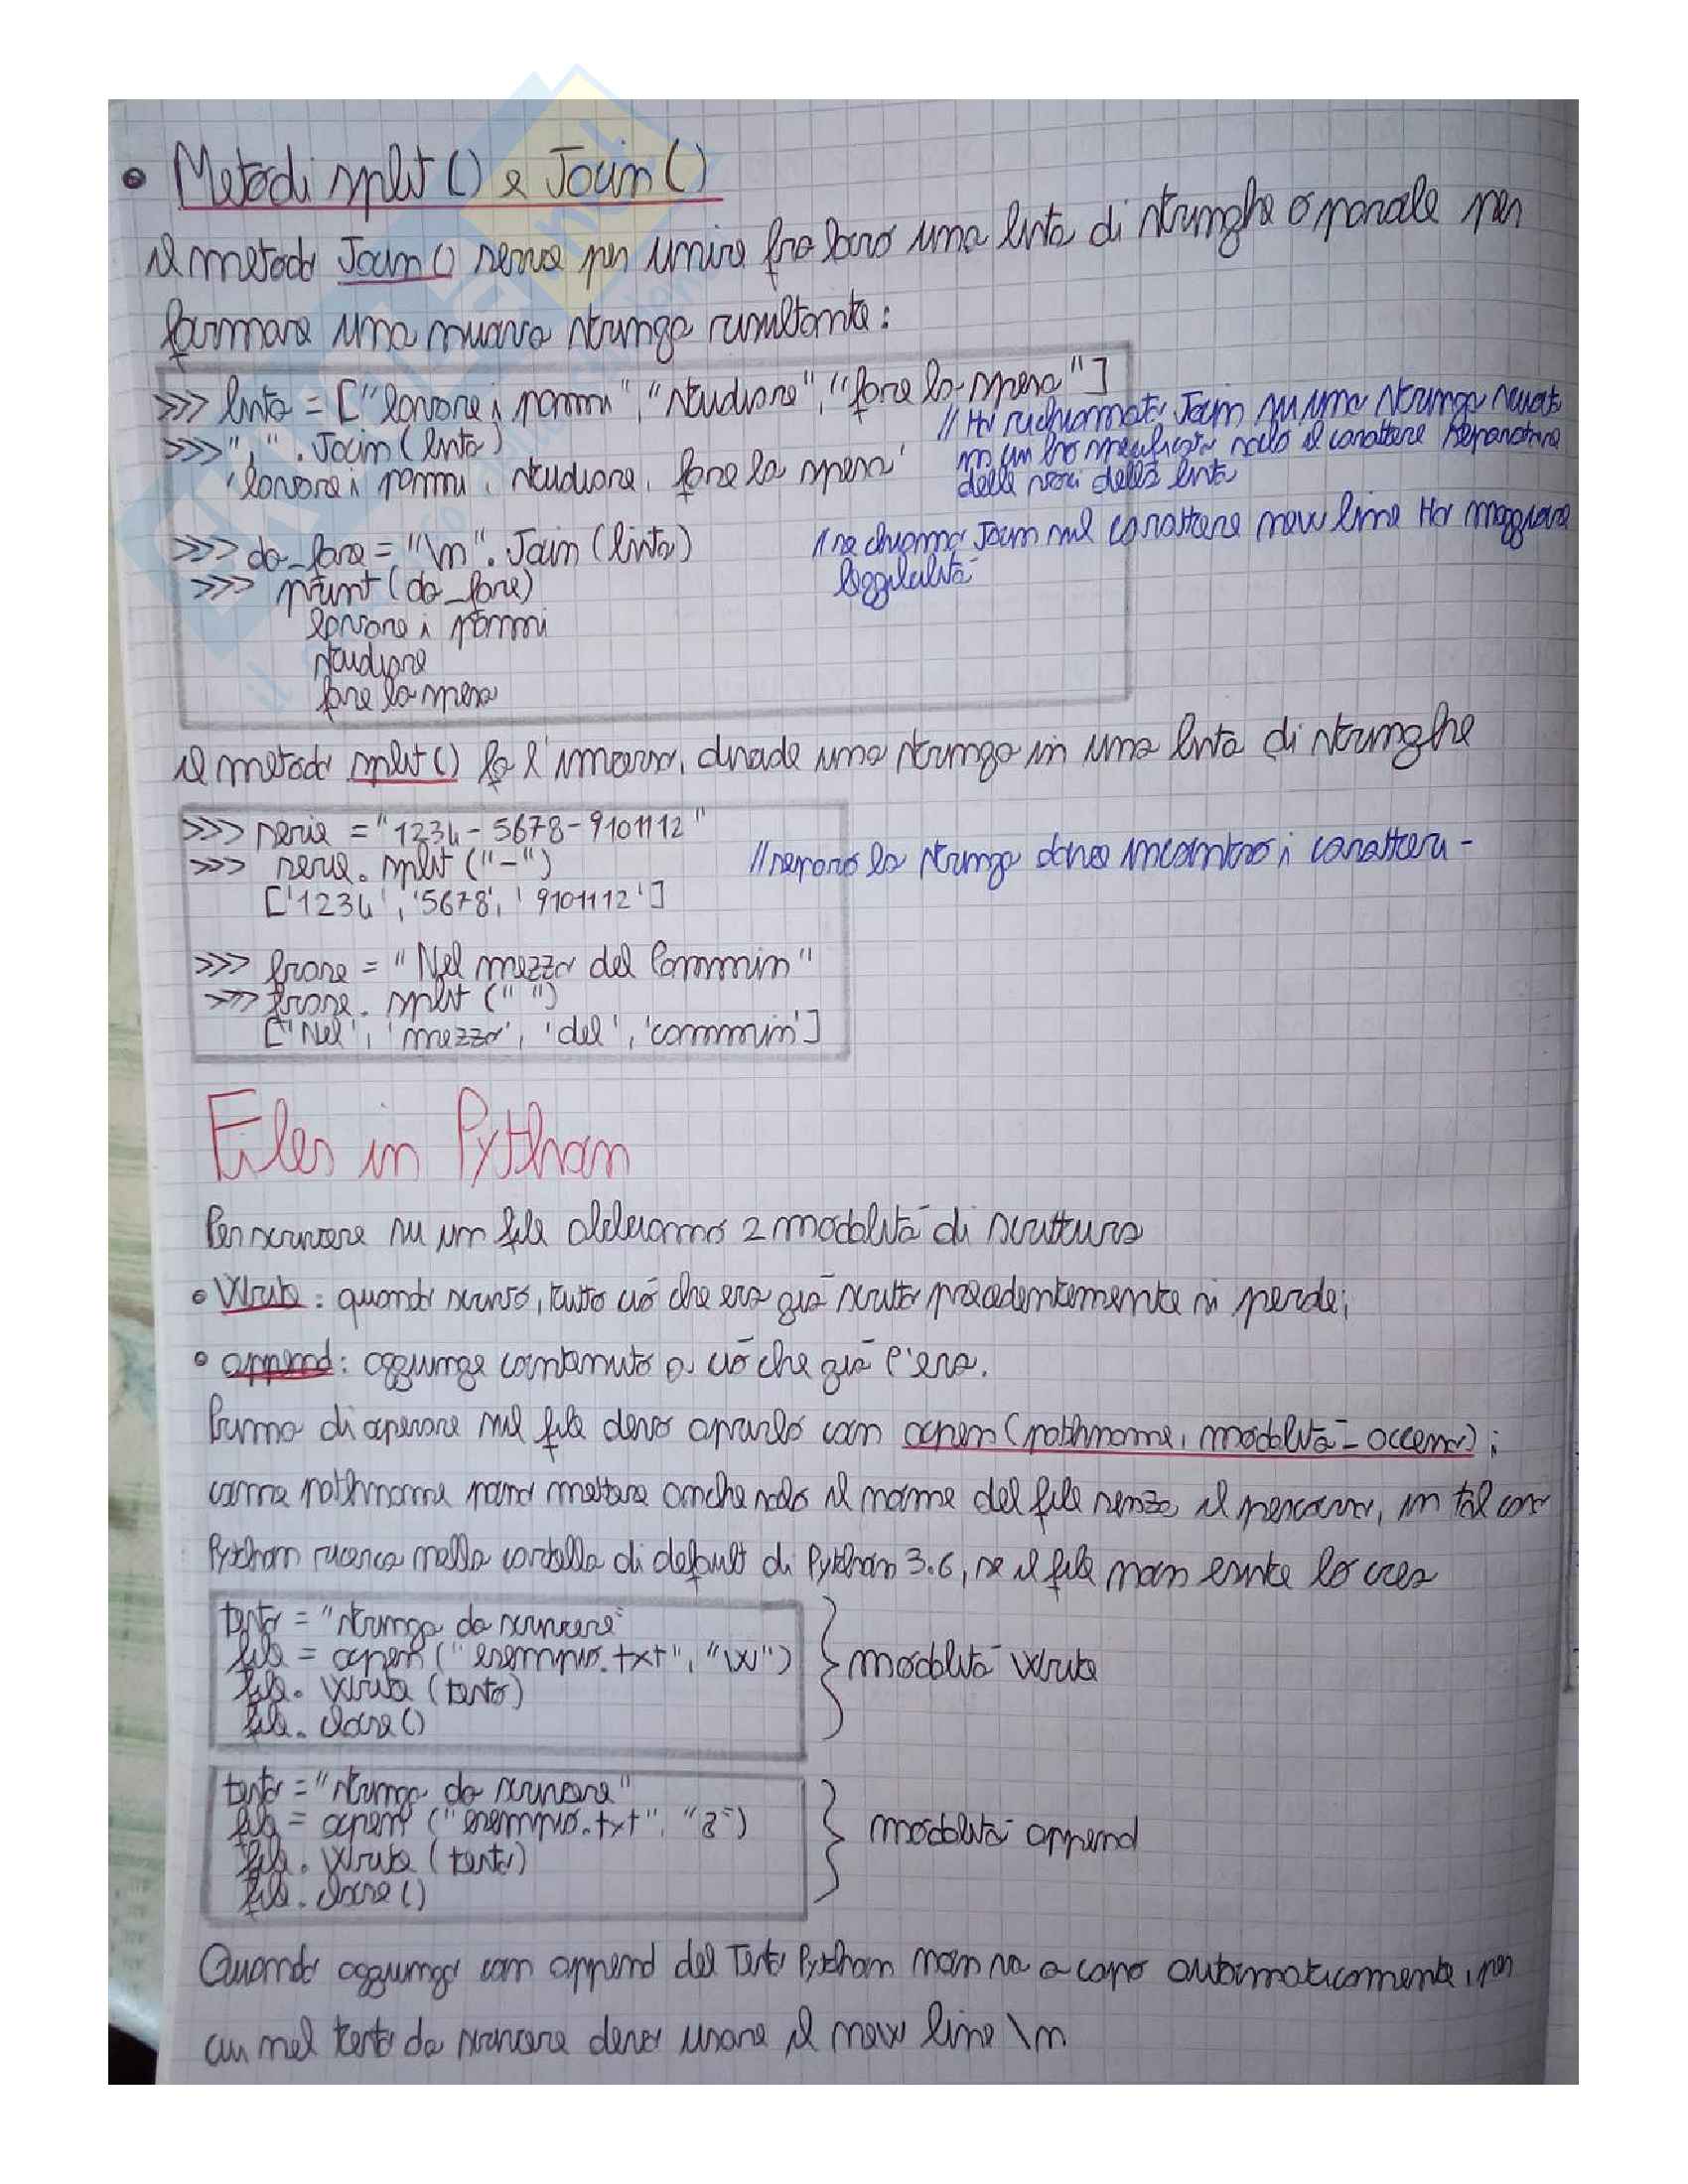 • Metodi split() e Join()
il metodo Join() serve per unire fra loro una lista di stringhe o parole per
formare una nuova stringa risultante:
>>> lista = ["lavare i panni", "studiare", "fare la spesa"]
>>> ", ". Join(lista)
'lavare i panni, studiare, fare la spesa'
// Ho richiamato Join su una stringa
solo il carattere separatore
delle voci della lista
>>> da_fare = "\n". Join(lista)
// se chiamo Join sul carattere new line Ho maggiore
leggibilità
>>> print(da_fare)
lavare i panni
studiare
fare la spesa
il metodo split() fa l'inverso, divide una stringa in una lista di stringhe
>>> serie = "1234-5678-9101112"
>>> serie. split("-")
['1234', '5678', '9101112']
// separo la stringa dove incontro i caratteri -
>>> frase = "Nel mezzo del Cammin"
>>> frase. split(" ")
['Nel', 'mezzo', 'del', 'cammin']
Files in Python
Per scrivere su un file abbiamo 2 modalità di scrittura
• Write: quando scrivo, tutto ciò che era già scritto precedentemente si perde;
• append: aggiunge contenuto a ciò che già c'era.
Prima di operare sul file devo aprirlo con open(pathname, modalità_accesso);
come pathname posso mettere anche solo il nome del file senza il percorso, in tal caso
Python ricerca nella cartella di default di Python 3.6, se il file non esiste lo crea
testo = "stringa da scrivere"
file = open("esempio.txt", "w")
file. write(testo)
file. close()
modalità write
testo = "stringa da scrivere"
file = open("esempio.txt", "a")
file. write(testo)
file. close()
modalità append
Quando aggiungo con append del Testo Python non va a capo automaticamente, per
cui nel testo da scrivere devo usare il new line \n